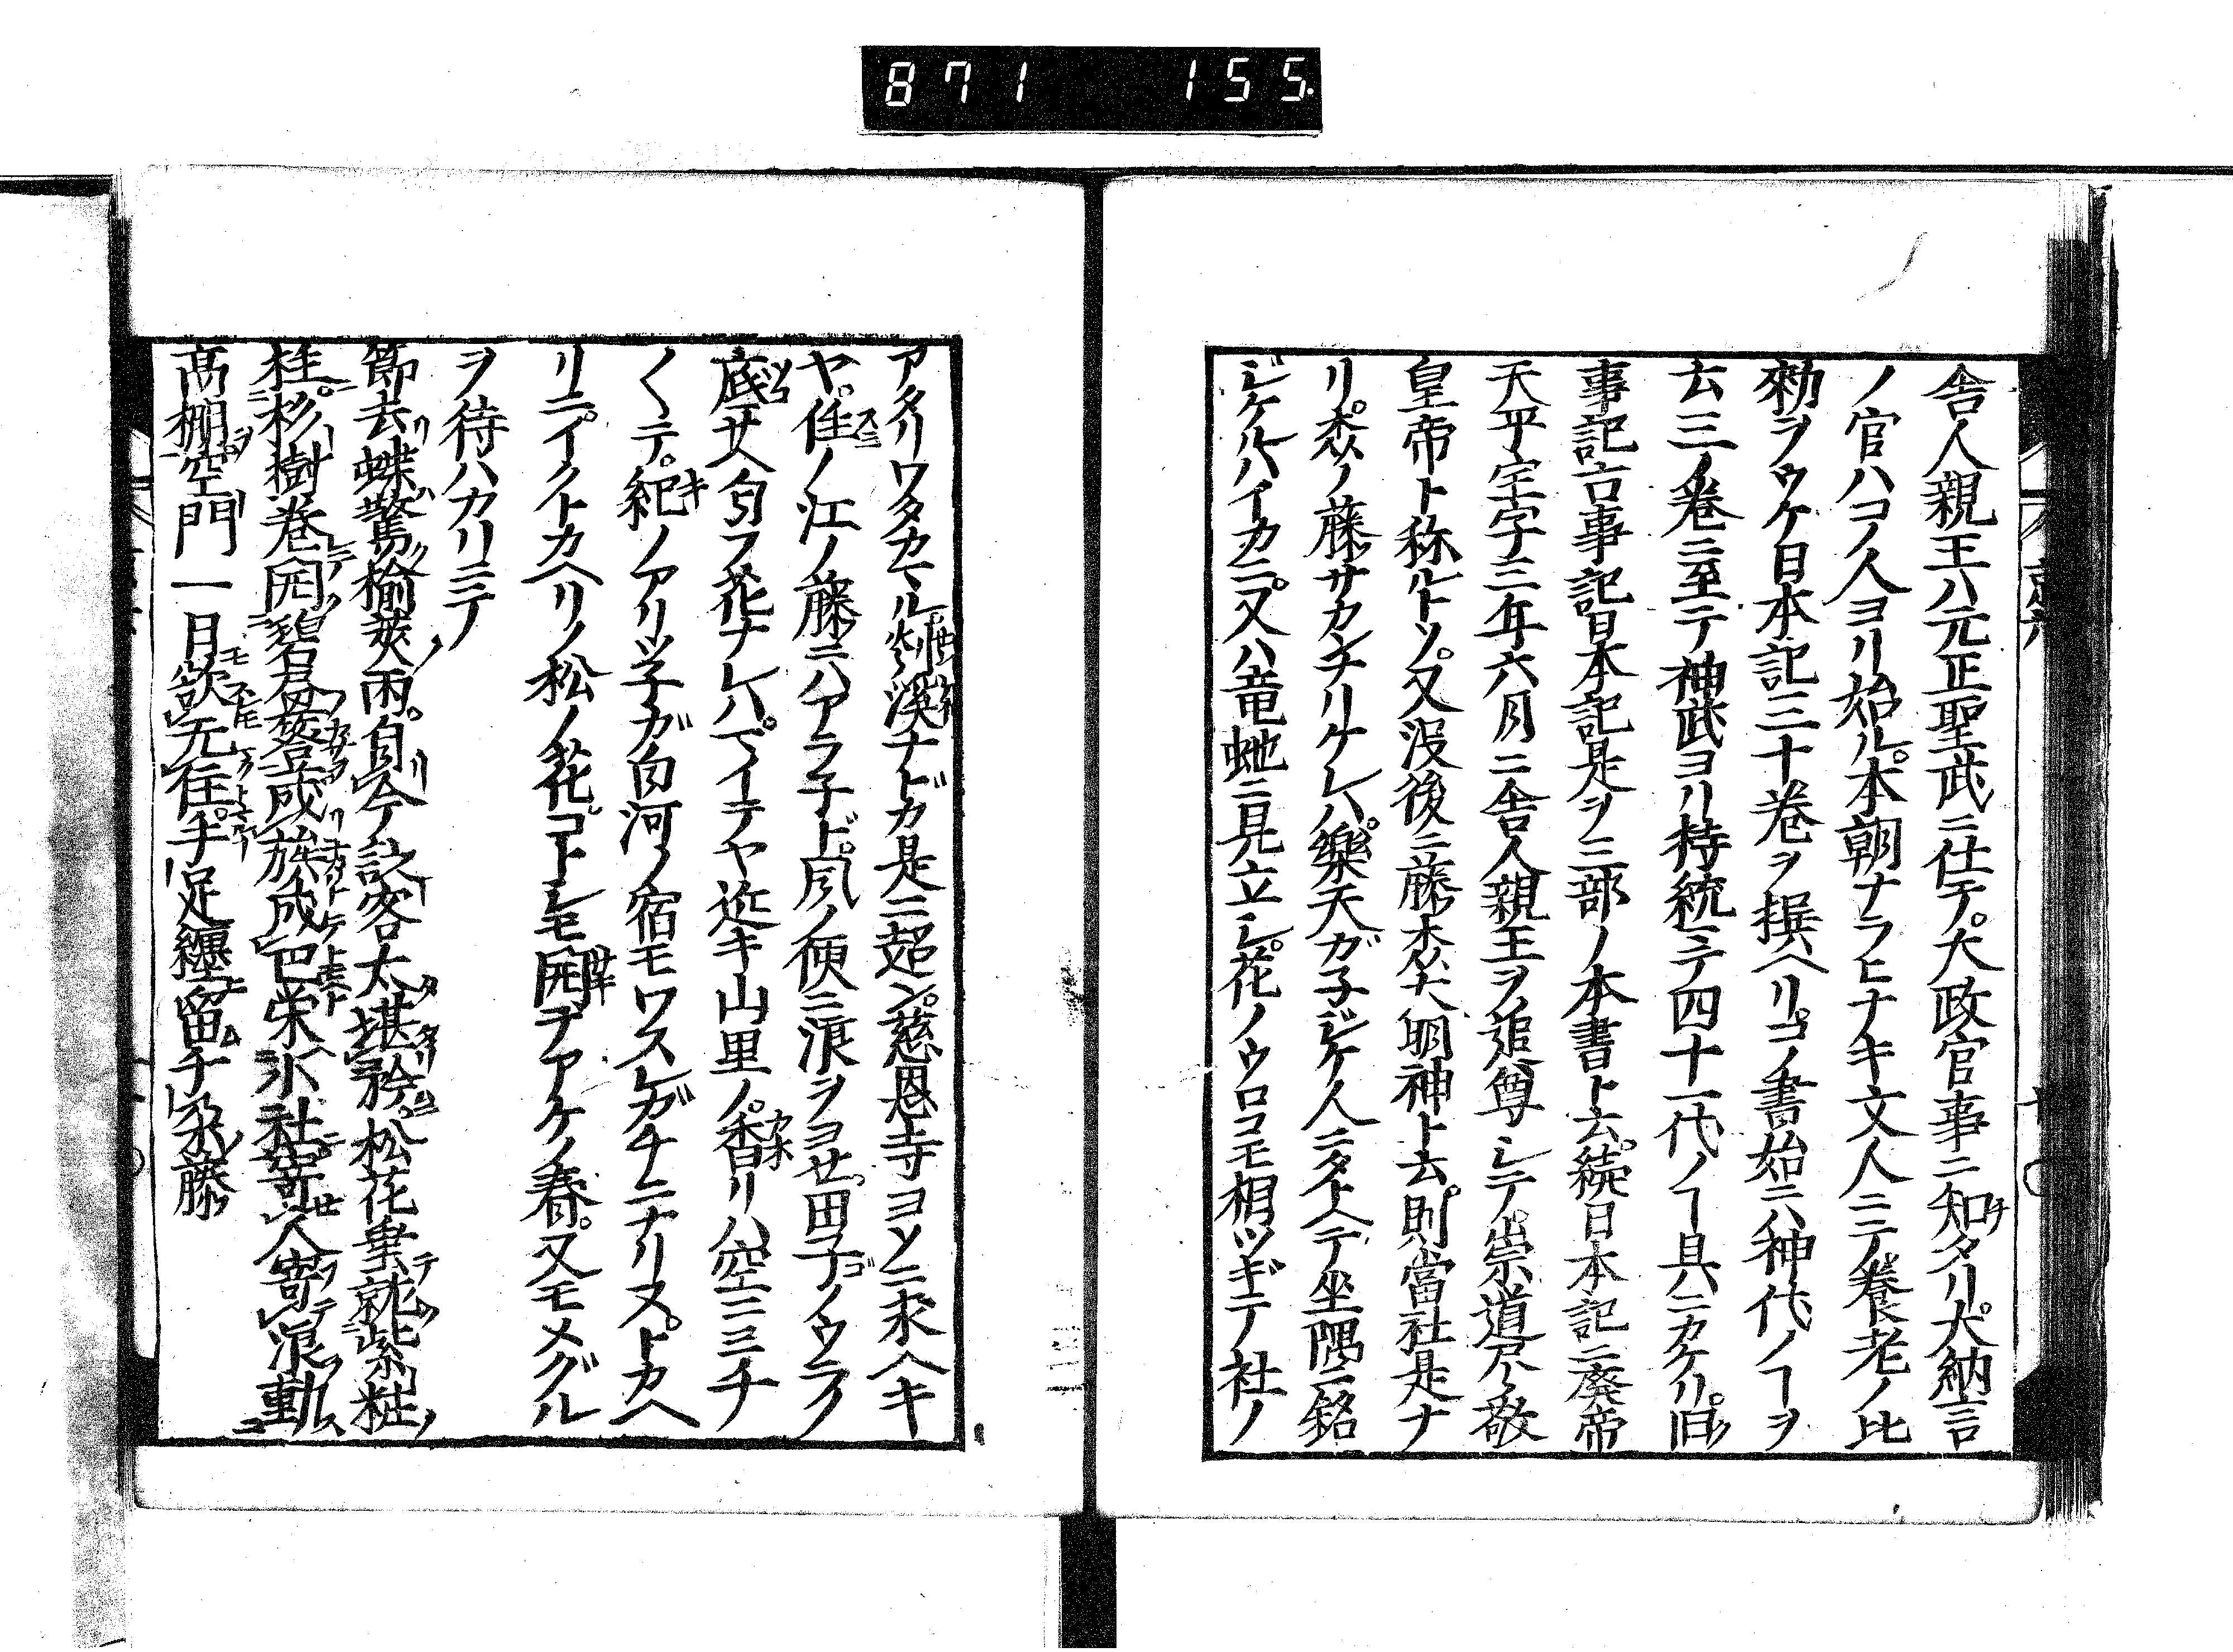 871 155
舎人親王ハ元正聖武ニ仕テ。大政官事ニ知タリ。大納言
ノ官ハコノ人ヨリ始ル。本朝ナラヒナキ文人ニテ養老ノ比
勅ヲウケ日本記三十巻ヲ撰ヘリ。コノ書始ニハ神代ノヿヲ
去三ノ巻ニ至テ神武ヨリ持統ニテ四十一代ノヿ具ニカケリ。旧
事記古事記日本記是ヲ三部ノ本書ト云。続日本記ニ廃帝
天平宝字三年六月ニ舎人親王ヲ追尊シテ崇道尽敬
皇帝ト称ルトソ。又没後ニ藤森大明神ト云。則當社是ナ
リ。森ノ藤サカンナリケレハ。樂天ガ子ジケ人ニタトヘテ坐隅ニ銘
ジケルハイカニ。又ハ竜虵ニ見立シ。花ノウロコモ相ツギテ社ノ
アタリワタカマル 渓ナドガ是ニ超ン。慈恩寺ヨソニ求ヘキ
ヤ。住ノ江ノ藤ニハアラ子ド。風ノ便ニ浪ヲヨせ。田子ノウラノ
底サヘ匂フ花ナレハ。マイテヤ近キ山里ノ。香リハ空ニミチ
ノクテ。紀ノアリツ子ガ白河ノ宿モワスレガチニナリヌ。トカヘ
リニ。イクトカヘリノ松ノ花。コトシモ開テアケノ春。又モメグル
ヲ待ハカリニテ
節去蝶驚楡莢雨。自今設客太堪矜。松花棄就紫粧
桂。杉樹巻開碧君簦。成旅成巴栄氷社。寄人寄浪動
高棚。空門一日欲无住。手足纏留千朶藤